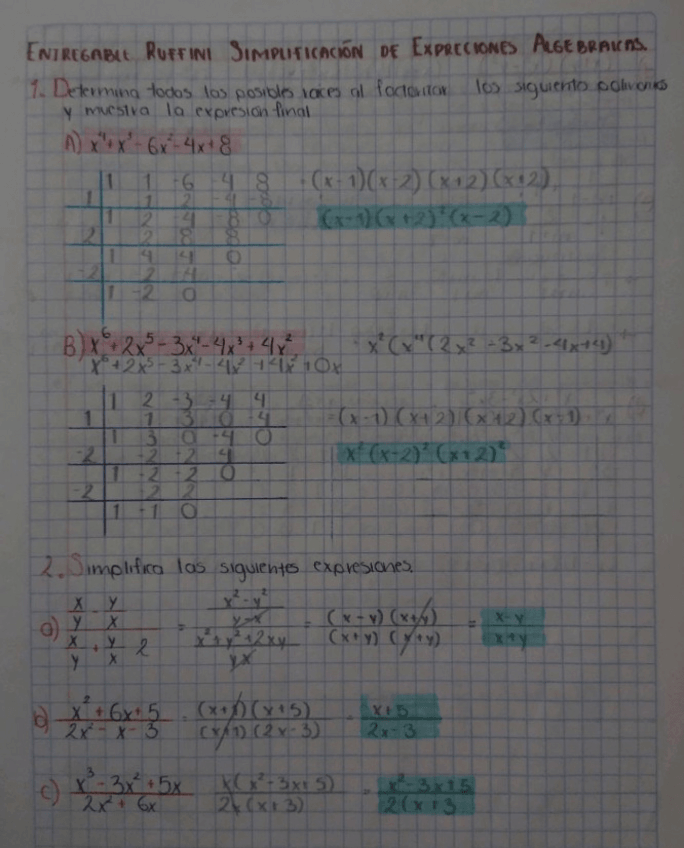 ENTREGABLE RUFFINI SIMPLIFICACIÓN DE EXPRECIONES ALGEBRAICAS
1. Determina todas las posibles raices al factorizar los siguiente polinomios
y muestra la expresión final
A) x⁴+x³-6x²-4x+8
1 1 -6 -4 8 = (x-1)(x-2)(x+2)(x+2)
1 1 2 -4 -8
1 2 -4 -8 0 (x-1)(x+2)²(x-2)
2 2 8 8
1 4 4 0
-2 -2 -4
1 -2 0
B) x⁶+2x⁵-3x⁴-4x³+4x² x²(x⁴(2x²-3x²-4x+4)
x⁶+2x⁵-3x⁴-4x²+4x²+0x
1 2 -3 -4 4
1 1 3 0 -4 =(x-1)(x+2)(x+2)(x-1)
1 3 0 -4 0
-2 -2 -2 4 x²(x-2)²(x+2)²
1 -2 -2 0
-2 -2 2
1 -1 0
2. Simplifica las siguientes expresiones.
x/y - y/x x²-y² / yx
a) = = (x-y)(x+y) / (x+y)(x+y) = x-y / x+y
x/y + y/x 2 x²+y²+2xy / yx
b) x²+6x+5 / 2x²-x-3 = (x+1)(x+5) / (x+1)(2x-3) = x+5 / 2x-3
c) x³-3x²+5x / 2x²+6x x(x²-3x+5) / 2x(x+3) = x²-3x+5 / 2(x+3